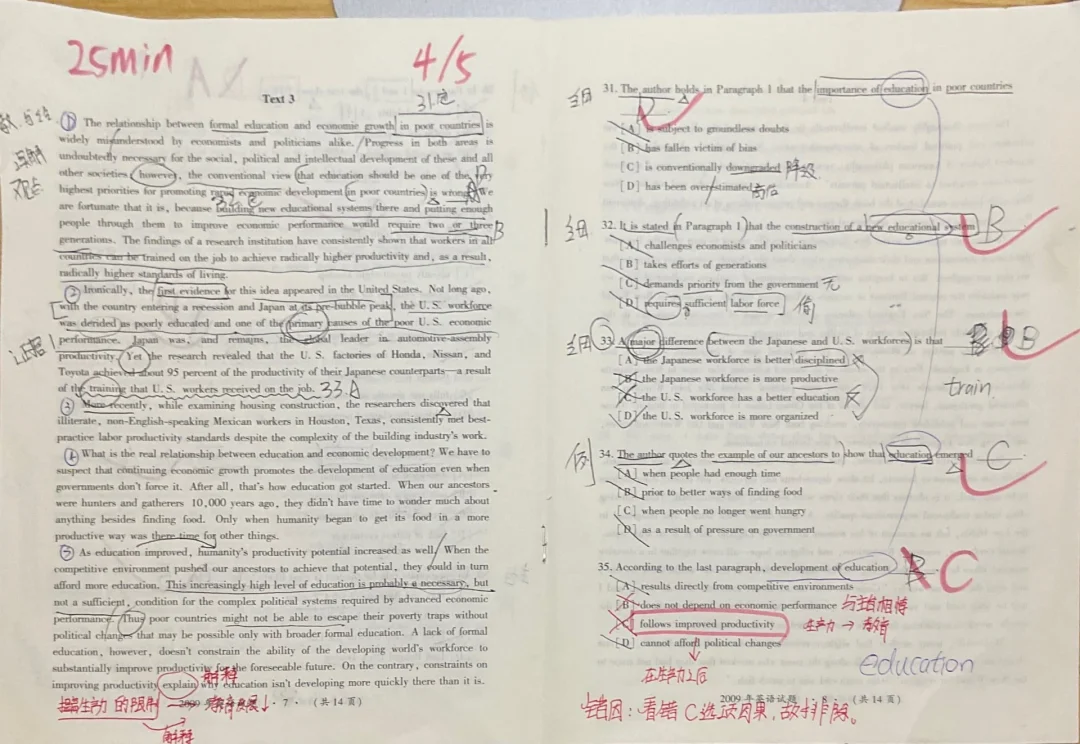 25min
4/5
Text 3
31.
① The relationship between formal education and economic growth in poor countries is
widely misunderstood by economists and politicians alike. Progress in both areas is
undoubtedly necessary for the social, political and intellectual development of these and all
other societies; however, the conventional view that education should be one of the very
highest priorities for promoting rapid economic development in poor countries is wrong. We
are fortunate that it is, because building new educational systems there and putting enough
people through them to improve economic performance would require two or three
generations. The findings of a research institution have consistently shown that workers in all
countries can be trained on the job to achieve radically higher productivity and, as a result,
radically higher standards of living.
② Ironically, the first evidence for this idea appeared in the United States. Not long ago,
with the country entering a recession and Japan at its pre-bubble peak, the U. S. workforce
was derided as poorly educated and one of the primary causes of the poor U. S. economic
performance. Japan was, and remains, the global leader in automotive-assembly
productivity. Yet the research revealed that the U. S. factories of Honda, Nissan, and
Toyota achieved about 95 percent of the productivity of their Japanese counterparts—a result
of the training that U. S. workers received on the job. 33.A
③ More recently, while examining housing construction, the researchers discovered that
illiterate, non-English-speaking Mexican workers in Houston, Texas, consistently met best-
practice labor productivity standards despite the complexity of the building industry's work.
④ What is the real relationship between education and economic development? We have to
suspect that continuing economic growth promotes the development of education even when
governments don't force it. After all, that's how education got started. When our ancestors
were hunters and gatherers 10,000 years ago, they didn't have time to wonder much about
anything besides finding food. Only when humanity began to get its food in a more
productive way was there time for other things.
⑤ As education improved, humanity's productivity potential increased as well. When the
competitive environment pushed our ancestors to achieve that potential, they could in turn
afford more education. This increasingly high level of education is probably a necessary, but
not a sufficient, condition for the complex political systems required by advanced economic
performance. Thus poor countries might not be able to escape their poverty traps without
political changes that may be possible only with broader formal education. A lack of formal
education, however, doesn't constrain the ability of the developing world's workforce to
substantially improve productivity for the foreseeable future. On the contrary, constraints on
improving productivity explain why education isn't developing more quickly there than it is.
解释
生产力的限制
解释
· 7 · (共 14 页)
细 31. The author holds in Paragraph 1 that the importance of education in poor countries
[A] is subject to groundless doubts
[B] has fallen victim of bias
[C] is conventionally downgraded 降级
[D] has been overestimated 高估
细 32. It is stated in Paragraph 1 that the construction of a new educational system B
[A] challenges economists and politicians
[B] takes efforts of generations
[C] demands priority from the government 无
[D] requires sufficient labor force 偷
细 33. A major difference between the Japanese and U. S. workforces is that B
[A] the Japanese workforce is better disciplined
[B] the Japanese workforce is more productive
[C] the U. S. workforce has a better education 反
[D] the U. S. workforce is more organized
train
例 34. The author quotes the example of our ancestors to show that education emerged C
[A] when people had enough time
[B] prior to better ways of finding food
[C] when people no longer went hungry
[D] as a result of pressure on government
35. According to the last paragraph, development of education B C
[A] results directly from competitive environments
[B] does not depend on economic performance 与主旨相悖
[C] follows improved productivity 生产力 → 教育
[D] cannot afford political changes
在生产力之后
education
2009 年英语试题 · 8 · (共 14 页)
错因：看错C选项因果，故排除。